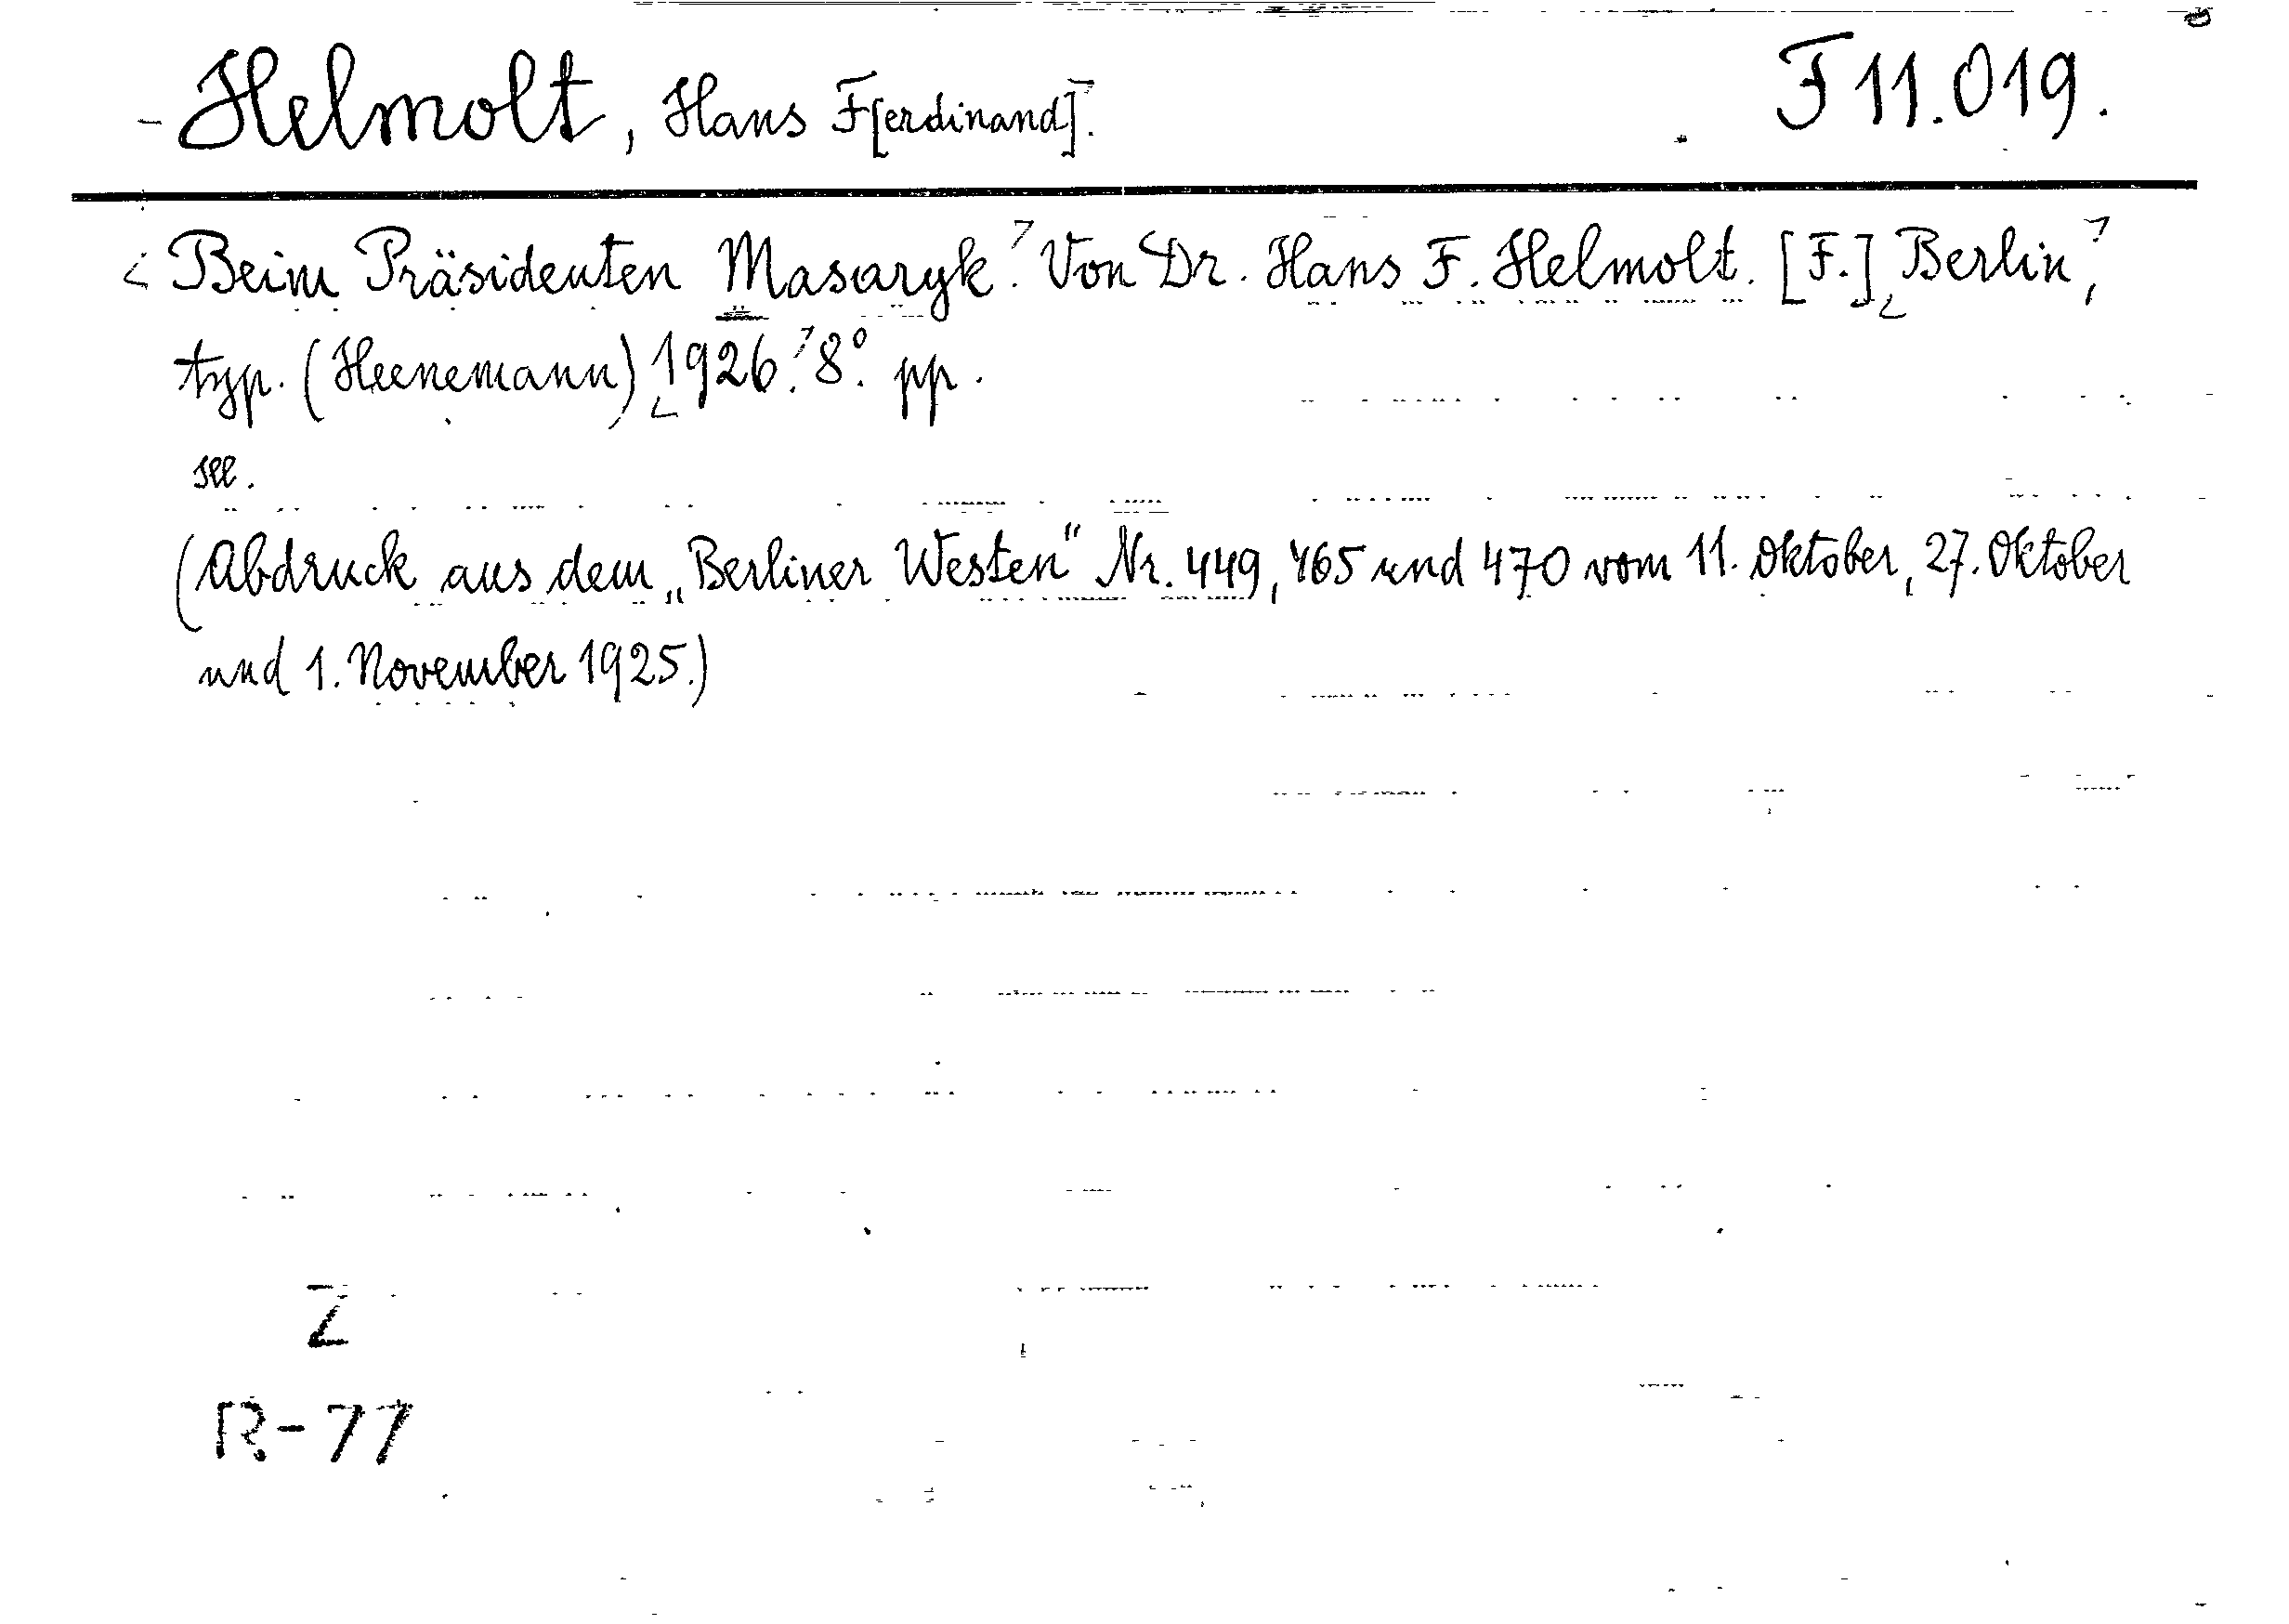 Helmolt, Hans F[erdinand]. F 11.019.
Beim Präsidenten Masaryk. Von Dr. Hans F. Helmolt. [F.] Berlin,
typ. (Heenemann) 1926. 8°. pp.
sll.
(Abdruck aus dem „Berliner Westen" Nr. 449, 465 und 470 vom 11. Oktober, 27. Oktober
und 1. November 1925.)
Z
R-77